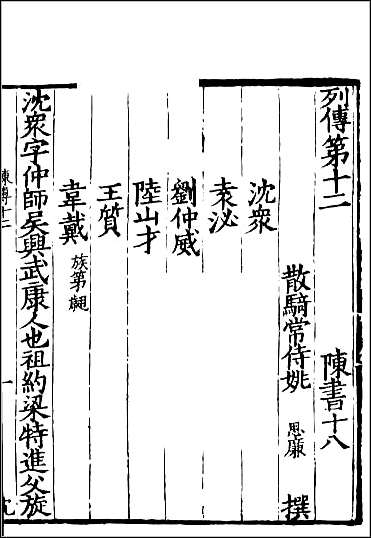 列傳第十二 陳書十八
散騎常侍姚 思廉 撰
沈衆
袁泌
劉仲威
陸山才
王質
韋載 族弟翽
沈衆字仲師吳興武康人也祖約梁特進父旋
陳傳十二 一